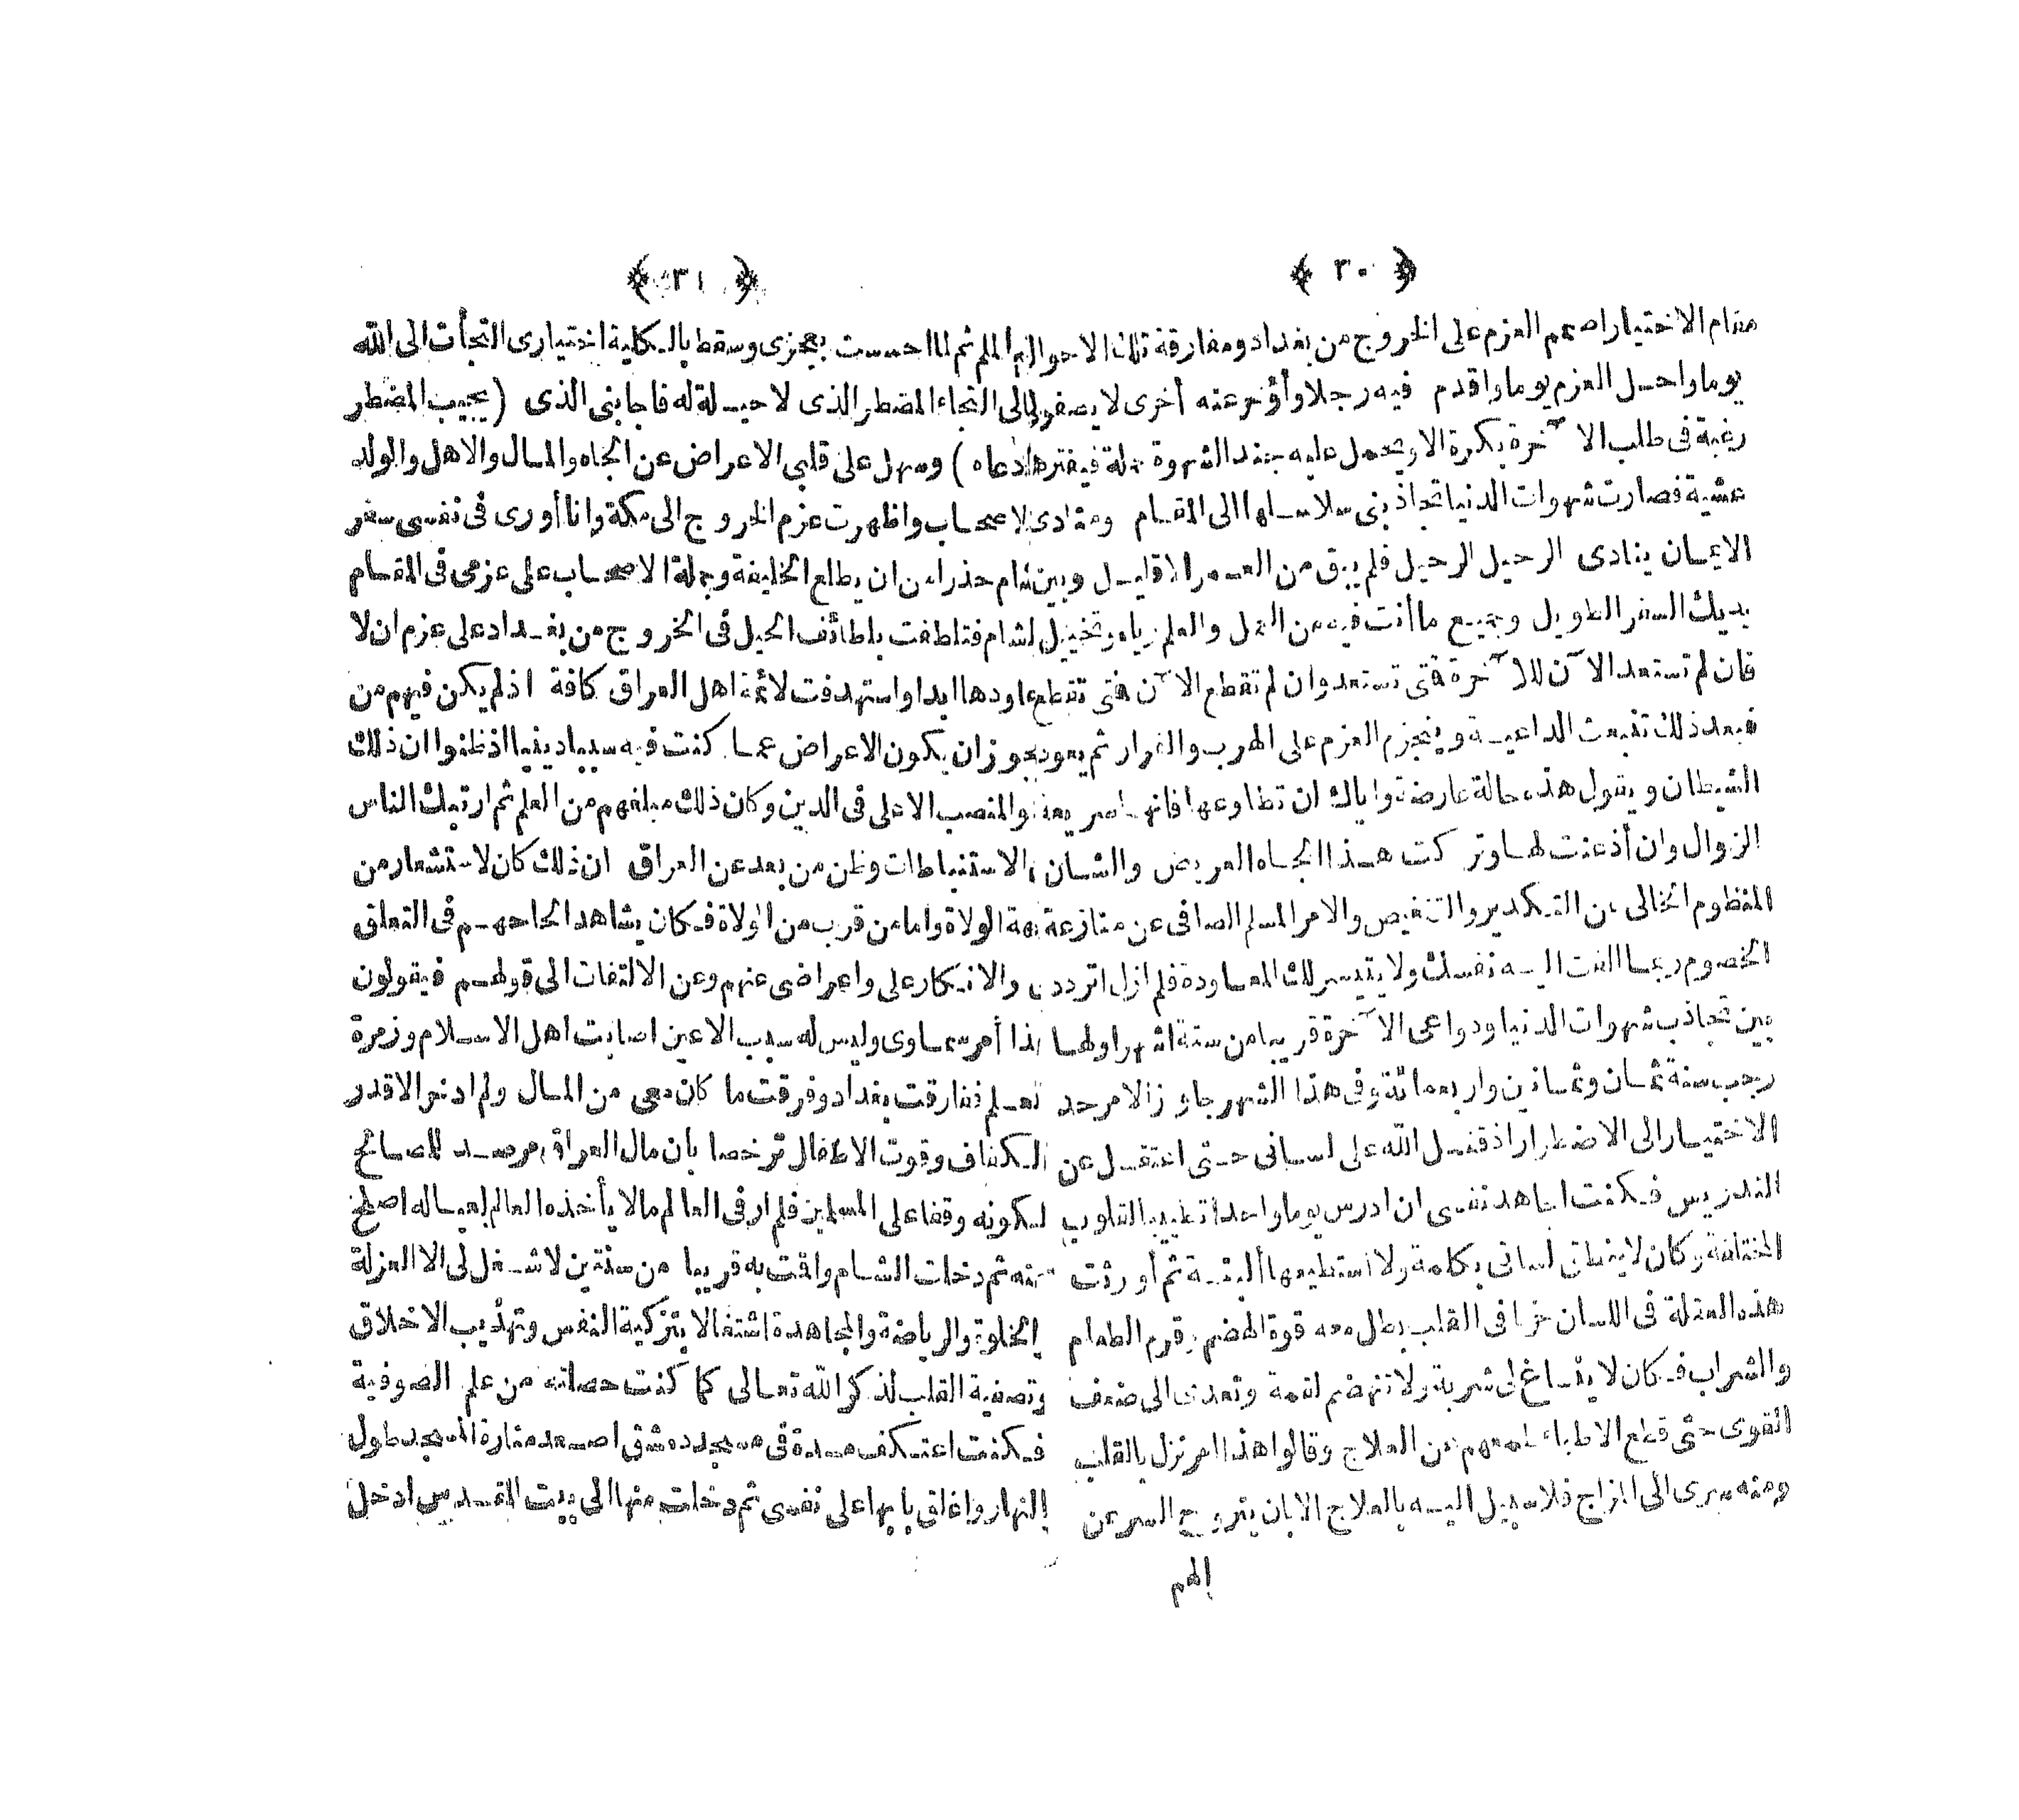 ﴿ ٣٠ ﴾
مقام الاختيار اصمم العزم على الخروج من بغداد ومفارقة تلك الاحوال
يوما واحل العزم يوما واقدم فيه رجلا وأؤخر عنه أخرى لا يصفو لى
رغبة فى طلب الآخرة بكرة الا ويحمل عليه جند الشهوة حملة فيفترها
عشية فصارت شهوات الدنيا تجاذبنى سلاسلها الى المقام ومنادى
الايمان ينادى الرحيل الرحيل فلم يبق من العمر الا قليل وبين
يديك السفر الطويل وجميع ما أنت فيه من العمل والعلم رياء وتخييل
فان لم تستعد الآن للآخرة فمتى تستعد وان لم تقطع الآن فمتى تقطع
فبعد ذلك تنبعث الداعية وينجزم العزم على الهرب والفرار ثم يعود
الشيطان ويقول هذه حالة عارضة واياك ان تطاوعها فانها سريعة
الزوال وان أذعنت لها وتركت هذا الجاه العريض والشان
المنظوم الخالى عن التكدير والتنغيص والامر المسلم الصافى عن منازعة
الخصوم ربما التفت اليه نفسك ولا يتيسر لك المعاودة فلم ازل اتردد
بين تجاذب شهوات الدنيا ودواعى الآخرة قريبا من ستة اشهر اولها
رجب سنة ثمان وثمانين واربعمائة وفى هذا الشهر جاوز الامر حد
الاختيار الى الاضطرار اذ قفل الله على لسانى حتى اعتقل عن
التدريس فكنت اجاهد نفسى ان ادرس يوما واحدا تطييبا لقلوب
المختلفة وكان لا ينطق لسانى بكلمة ولا استطيعها ألبتة ثم أورثت
هذه العقلة فى اللسان حزنا فى القلب بطل معه قوة الهضم وقرم الطعام
والشراب فكان لا ينساغ لى شربة ولا تنهضم لقمة وتعدى الى ضعف
القوى حتى قطع الاطباء طمعهم عن العلاج وقالوا هذا امر نزل بالقلب
ومنه سرى الى المزاج فلا سبيل اليه بالعلاج الا بان يتروح السر عن
الهم
﴿ ٣١ ﴾
الملم ثم لما احسست بعجزى وسقط بالكلية اختيارى التجأت الى الله
الى التجاء المضطر الذى لا حيلة له فاجابنى الذى (يجيب المضطر
اذا دعاه) وسهل على قلبى الاعراض عن الجاه والمال والاهل والولد
والاصحاب واظهرت عزم الخروج الى مكة وانا أورى فى نفسى سفر
الشام حذرا من ان يطلع الخليفة وجملة الاصحاب على عزمى فى المقام
بالشام فتلطفت بلطائف الحيل فى الخروج من بغداد على عزم ان لا
اعاودها ابدا واستهدفت لائمة اهل العراق كافة اذ لم يكن فيهم من
يجوز ان يكون الاعراض عما كنت فيه سببا دينيا اذ ظنوا ان ذلك
هو المنصب الاعلى فى الدين وكان ذلك مبلغهم من العلم ثم ارتبك الناس
فى الاستنباطات وظن من بعد عن العراق ان ذلك كان لاستشعار من
جهة الولاة واما من قرب من الولاة فكان يشاهد الحاحهم فى التعلق
بى والانكار على واعراضى عنهم وعن الالتفات الى قولهم فيقولون
هذا أمر سماوى وليس له سبب الا عين اصابت اهل الاسلام وزمرة
العلم ففارقت بغداد وفرقت ما كان معى من المال ولم ادخر الا قدر
الكفاف وقوت الاطفال ترخصا بان مال العراق مرصد للمصالح
لكونه وقفا على المسلمين فلم ار فى العالم مالا يأخذه العالم لعياله اصلح
منه ثم دخلت الشام واقمت به قريبا من سنتين لا شغل لى الا العزلة
والخلوة والرياضة والمجاهدة اشتغالا بتزكية النفس وتهذيب الاخلاق
وتصفية القلب لذكر الله تعالى كما كنت حصلته من علم الصوفية
فكنت اعتكف مدة فى مسجد دمشق اصعد منارة المسجد طول
النهار واغلق بابها على نفسى ثم دخلت منها الى بيت المقدس ادخل